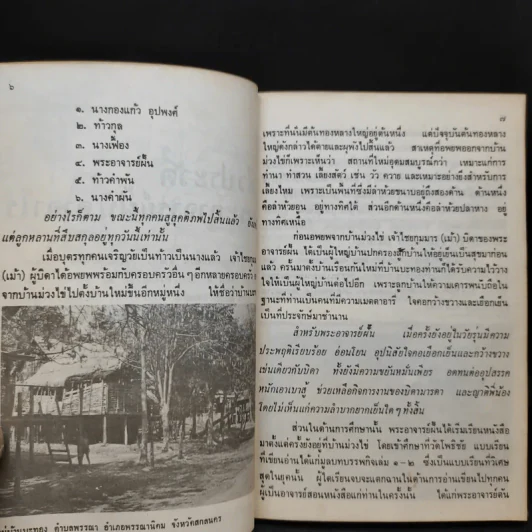 ๖
๑. นางกองแก้ว อุปพงศ์
๒. ท้าวกุล
๓. นางเฟื่อง
๔. พระอาจารย์ฝั้น
๕. ท้าวคำพัน
๖. นางคำผัน
อย่างไรก็ตาม ขณะนี้ทุกคนสู่สุคติภพไปสิ้นแล้ว
แต่ลูกหลานที่สืบสกุลอยู่ทุกวันนี้เท่านั้น
เมื่อบุตรทุกคนเจริญวัยเป็นท้าวเป็นนางแล้ว เจ้าไชย
(เม้า) ผู้บิดาได้อพยพพร้อมกับครอบครัวอื่น ๆ อีกหลายครอบครัว
จากบ้านม่วงไข่ไปตั้งบ้านใหม่ขึ้นอีกหมู่หนึ่ง ให้ชื่อว่าบ้าน
ตำบลพรรณา อำเภอพรรณานิคม จังหวัดสกลนคร
๗
เพราะที่นั่นมีต้นทองหลางใหญ่อยู่ต้นหนึ่ง แต่ปัจจุบันต้นทองหลาง
ใหญ่ดังกล่าวได้ตายและผุพังไปสิ้นแล้ว สาเหตุที่อพยพออกจากบ้าน
ม่วงไข่ก็เพราะเห็นว่า สถานที่ใหม่อุดมสมบูรณ์กว่า เหมาะแก่การ
ทำนา ทำสวน เลี้ยงสัตว์ เช่น วัว ควาย และเหมาะอย่างยิ่งสำหรับการ
เลี้ยงไหม เพราะเป็นพื้นที่ซึ่งมีลำห้วยขนาบอยู่ถึงสองด้าน ด้านหนึ่ง
คือลำห้วยอูน อยู่ทางทิศใต้ ส่วนอีกด้านหนึ่งคือลำห้วยปลาหาง อยู่
ทางทิศเหนือ
ก่อนอพยพจากบ้านม่วงไข่ เจ้าไชยกุมมาร (เม้า) บิดาของพระ
อาจารย์ฝั้น ได้เป็นผู้ใหญ่บ้านปกครองลูกบ้านให้อยู่เย็นเป็นสุขมาก่อน
แล้ว ครั้นมาตั้งบ้านเรือนกันใหม่ที่บ้านบะทองท่านก็ได้รับความไว้วาง
ใจให้เป็นผู้ใหญ่บ้านต่อไปอีก เพราะลูกบ้านให้ความเคารพนับถือใน
ฐานะที่ท่านเป็นคนที่มีความเมตตาอารี ใจคอกว้างขวางและเยือกเย็น
เป็นที่ประจักษ์มาช้านาน
สำหรับพระอาจารย์ฝั้น เมื่อครั้งยังอยู่ในวัยรุ่นมีความ
ประพฤติเรียบร้อย อ่อนโยน อุปนิสัยใจคอเยือกเย็นและกว้างขวาง
เช่นเดียวกับบิดา ทั้งยังมีความขยันหมั่นเพียร อดทนต่ออุปสรรค
หนักเอาเบาสู้ ช่วยเหลือกิจการงานของบิดามารดา และญาติพี่น้อง
โดยไม่เห็นแก่ความลำบากยากเย็นใด ๆ ทั้งสิ้น
ส่วนในด้านการศึกษานั้น พระอาจารย์ฝั้นได้เริ่มเรียนหนังสือ
มาตั้งแต่ครั้งยังอยู่ที่บ้านม่วงไข่ โดยเข้าศึกษาที่วัดโพธิชัย แบบเรียน
ที่เขียนอ่านได้แก่มูลบทบรรพกิจเล่ม ๑-๒ ซึ่งเป็นแบบเรียนที่วิเศษ
สุดในยุคนั้น ผู้ใดเรียนจบจะแตกฉานในด้านการอ่านเขียนไปทุกคน
ผู้เป็นอาจารย์สอนหนังสือแก่ท่านในครั้งนั้น ได้แก่พระอาจารย์ตัน